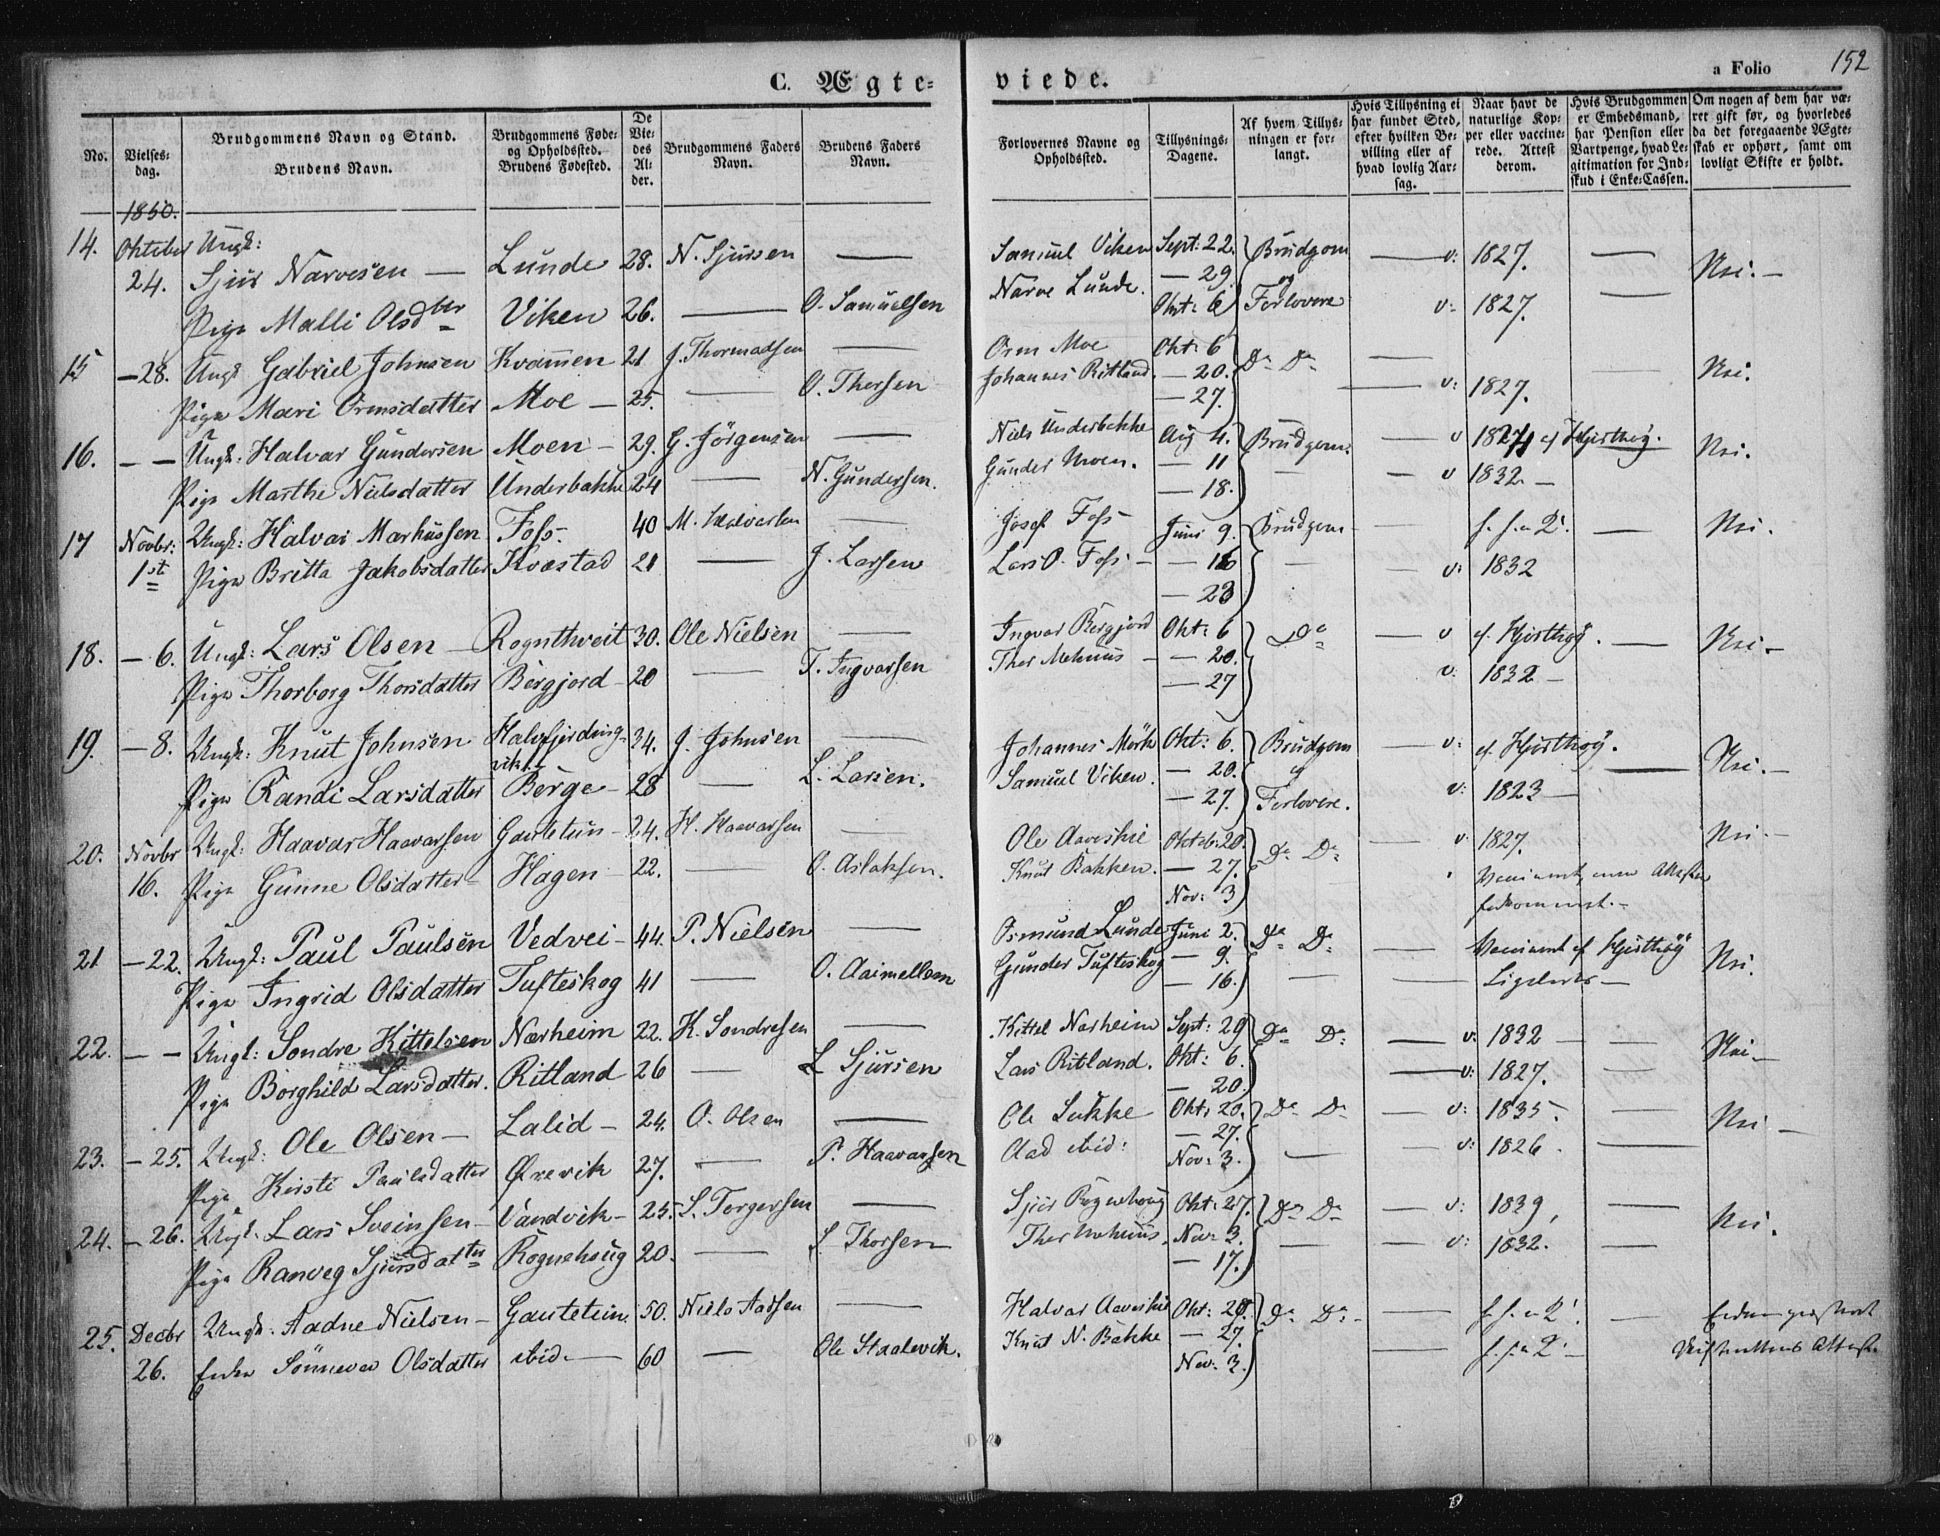 C. Ægte-
viede.
a Folio 152
No.
Vielses-
dag.
Brudgommens Navn og Stand.
Brudens Navn.
Brudgommens Føde-
og Opholdssted.
Brudens Fødested.
De
Vie-
des
Al-
der.
Brudgommens Faders
Navn.
Brudens Faders
Navn.
Forlovernes Navne og
Opholdssted.
Tillysnings-
Dagene.
Af hvem Tillys-
ningen er for-
langt.
Hvis Tillysning ei
har fundet Sted,
efter hvilken Be-
villing eller af
hvad lovlig Aar-
sag.
Naar havt de
naturlige Kop-
per eller vaccine-
rede. Attest
derom.
Hvis Brudgommen
er Embedsmand,
har Pension eller
Vartpenge, hvad Le-
gitimation for Ind-
skud i Enke-Cassen.
Om nogen af dem har væ-
ret gift før, og hvorledes
da det foregaaende Ægte-
skab er ophørt, samt om
lovligt Skifte er holdt.
1850.
14. Oktober Ungk:
24. Sjur Narvesen — Lunde 28. N. Sjursen — Samuel Viken Sept: 22. Brudgom — v: 1827. — Nei. —
Narve Lunde. — 29 og
Pige Malli Olsdtter Viken 26. — O. Samuelsen Okt: 6 Forlovere v: 1827. —
15 — 28. Ungk Gabriel Johnsen Kvamen 21 J. Thormodsen — Orm Moe Okt: 6 Do Do — — Nei.
Johannes Ritland. — 20.
Pige Mari Ormsdatter Moe — 25. — O. Thorsen — 27. — v: 1827.
16. — — Ungk: Halvar Gundersen Moen — 29. G. Jörgensen — Niels Underbakke Aug 4. Brudgom. — v 1824 af Hjorthøy. Nei.
Gunder Moen. — 11
Pige Marthe Nielsdatter Underbakke 24 — N. Gundersen. — 18. — — v 1832 —
17 Novbr: Ungk: Halvar Markussen Foss — 40 M. Halvorsen — Josef Foss Juni 9. Brudgom — — Nei.
1st Pige Britta Jakobsdatter Kvæstad 21 — J. Larsen Lars O. Foss — — 16 — — v: 1832
— 23
18. — 6. Ungk: Lars Olsen — Rognthveit 30. Ole Nielsen — Ingvar Bergjord Okt: 6 Do — v af Hjorthøy. — Nei. —
Thor Mehuus — — 20.
Pige Thorborg Thorsdatter Bergjord — 20 — T. Ingvarsen — 27 v. 1832 —
19. — 8. Ungk: Knut Johnsen Halvfjerding-
vik. 34. J. Johnsen — Johannes Mörk Okt: 6. Brudgom — v: af Hjorthøy. — Nei. —
Samuel Viken. — 20. og
Pige Randi Larsdatter Børge — 28 — L. Larsen. — 27. Forlovere. v: 1823 —
20. Novbr Ungk: Haavar Haavarsen Gautetun — 24. H. Haavarsen — Ole Aareskie Oktob: 20. Do Do — v. 1827. Nei. —
16. Pige Gunne Olsdatter — Hagen — 22. — O. Aslaksen. Knut Bakken. — 27.
Nov: 3
21 — 22. Ungk: Paul Paulsen Vedvei — 44. P. Nielsen — Osmund Lunde Juni 2. Do Do — af Hjorthøy Nei.
Pige Ingrid Olsdatter Tufteskog 41 — O. Gunder Tufteskog — 9.
— 16. — — Ligeledes —
22. — — Ungk: Sondre Kittelsen Nærheim 22. K. Sondresen — Kittel Narheim Sept: 29 Do Do — v: 1832 — — Nei —
Pige Borghild Larsdatter. Ritland 26 — L Sjursen Lars Ritland. Okt: 6. — v: 1827.
— 20.
23. — 25. Ungk: Ole Olsen — Lalid — 24. O. Olsen — Ole Sukke Okt: 20. Do Do — v: 1835. — Nei —
Pige Kirsti Paulsdatter Ørevik 27. — P. Haavarsen Aad ibid: — 27.
Nov: 3. — — v: 1826. —
24. — 26. Ungk. Lars Sveinsen — Vandvik — 25. S. Torgersen — Sjur Rognehoug Okt: 27. Do Do — v: 1839, — Nei.
Pige Ranveg Sjursdatter Rognehoug 20. — S. Thorsen Thor Mehuus. Nov: 3. — — v: 1832. —
— 17.
25. Decbr Ungk. Aadne Nielsen — Gautetun. 50. Niels Aadsen — Halvar Aareskie Okt: 20. Do Do — — —
26. Enke Sönneva Olsdatter ibid. — 60 — Ole Staalevik. Knut N. Bakke — 27.
Nov: 3.